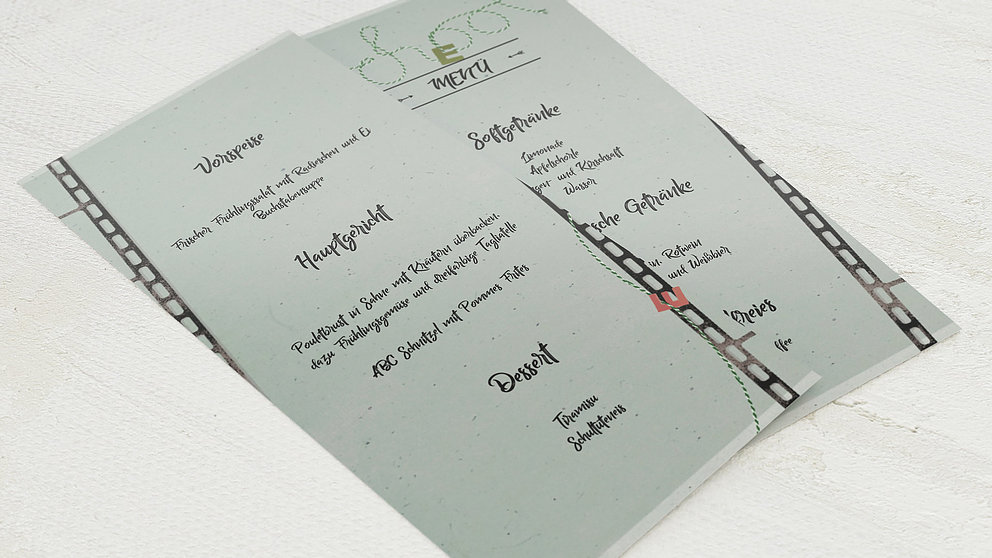 Vorspeise
Frischer Frühlingssalat mit Radieschen und Ei
Buchstabensuppe
Hauptgericht
Pouletbrust in Sahne mit Kräutern überbacken.
dazu Frühlingsgemüse und dreifarbige Tagliatelle
ABC Schnitzel mit Pommes Frites
Dessert
Tiramisu
Schultüteneis
E
MENÜ
Softgetränke
Limonade
Apfelschorle
und Kirschsaft
Wasser
Getränke
Rotwein
und Weißbier